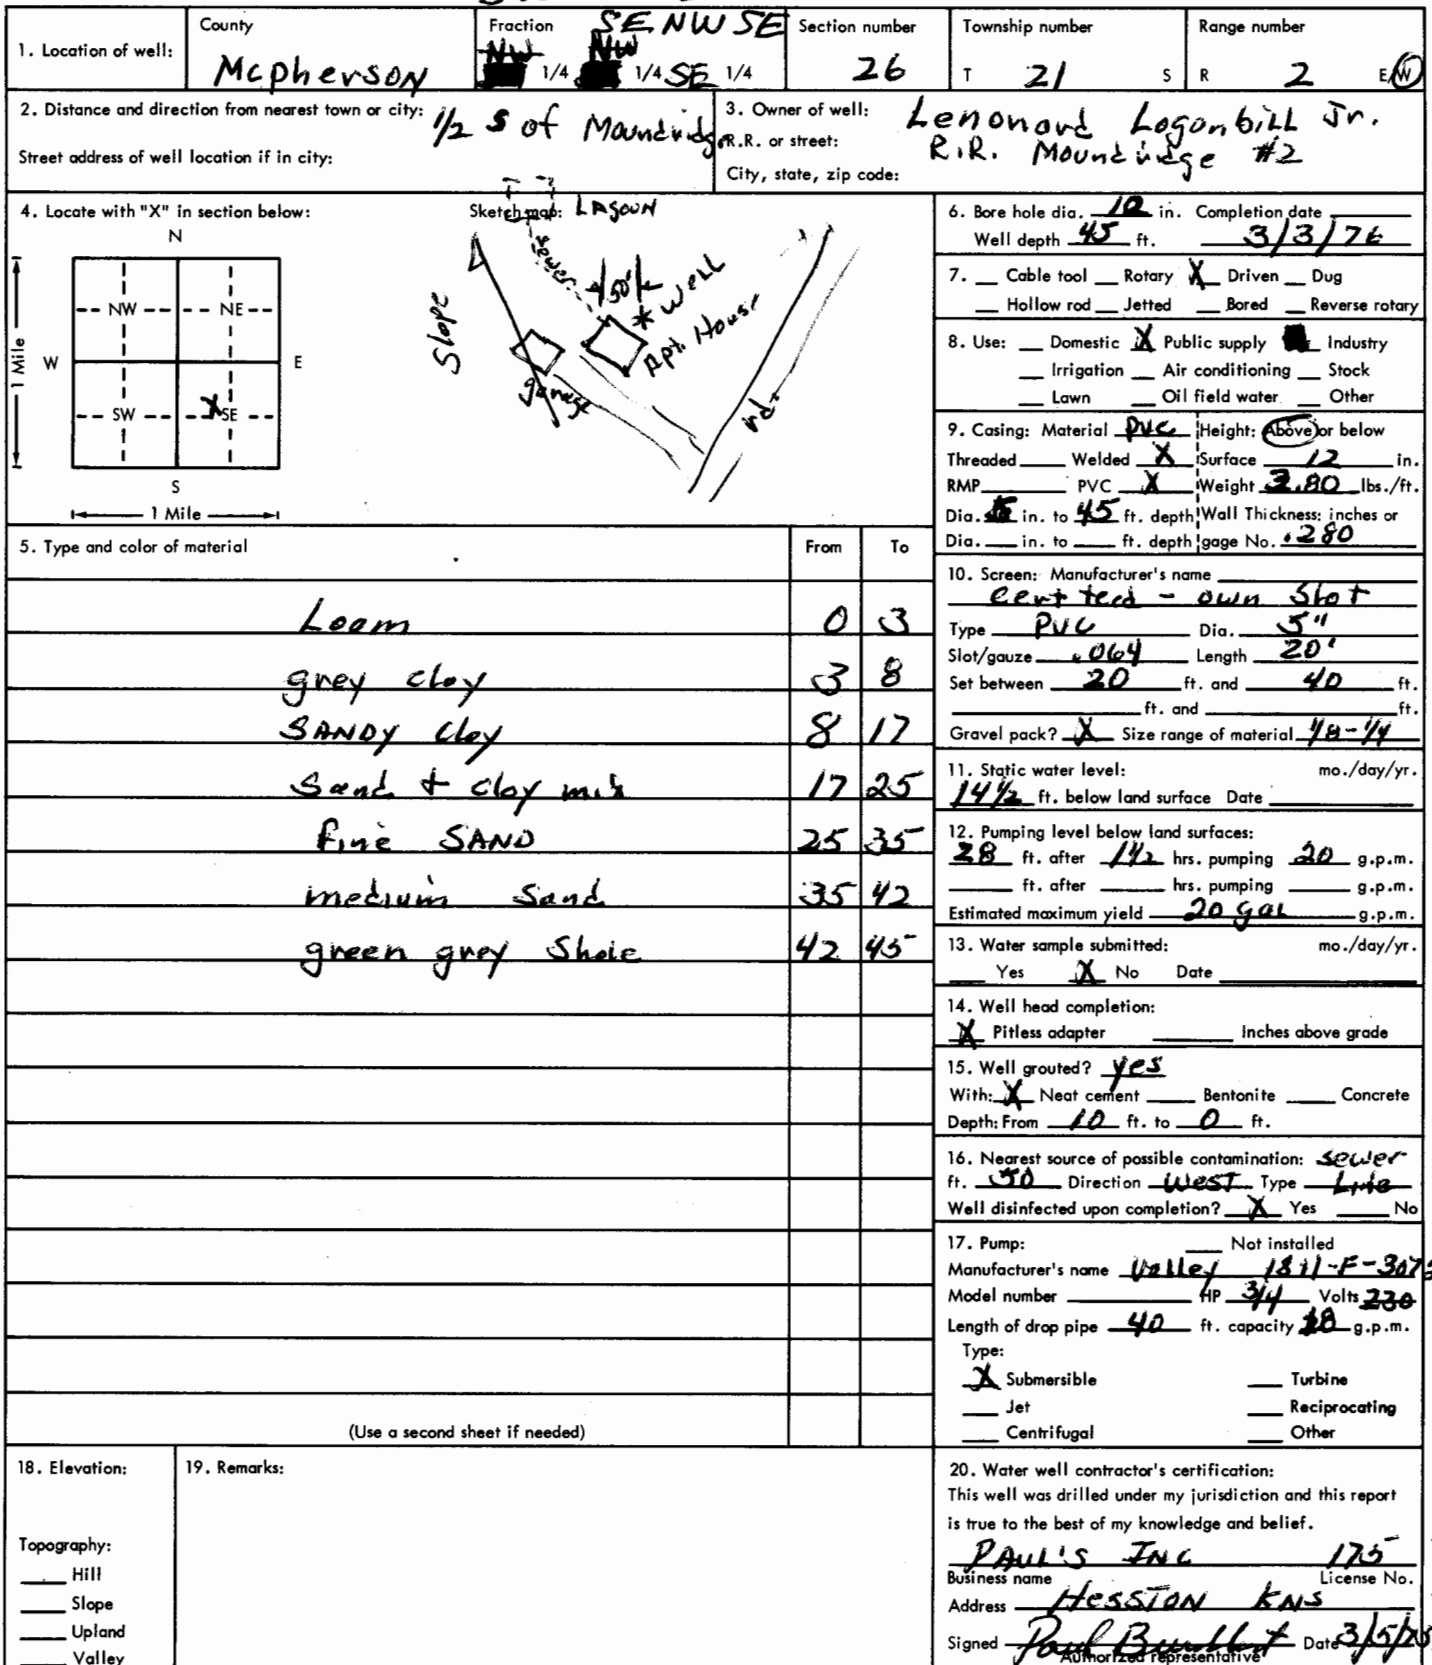 County
Fraction SE NW SE
Section number
Township number
Range number
1. Location of well: McPherson NW 1/4 NW 1/4 SE 1/4 26 T 21 S R 2 E/W
2. Distance and direction from nearest town or city: 1/2 S of Moundridge
Street address of well location if in city:
3. Owner of well: Lenonard Loganbill Jr.
R.R. or street: R.R. Moundridge #2
City, state, zip code:
4. Locate with "X" in section below:
N
NW NE
W E
SW X SE
S
1 Mile
1 Mile
Sketch map: LAGOON
sewer
50'
* Well
Slope
Apt. House
garage
rd.
5. Type and color of material From To
Loam 0 3
grey clay 3 8
SANDY Clay 8 17
Sand + Clay mix 17 25
fine SAND 25 35
medium Sand 35 42
green grey Shale 42 45
(Use a second sheet if needed)
6. Bore hole dia. 10 in. Completion date
Well depth 45 ft. 3/3/76
7. Cable tool Rotary X Driven Dug
Hollow rod Jetted Bored Reverse rotary
8. Use: Domestic X Public supply Industry
Irrigation Air conditioning Stock
Lawn Oil field water Other
9. Casing: Material PVC Height: Above or below
Threaded Welded X Surface 12 in.
RMP PVC X Weight 2.80 lbs./ft.
Dia. in. to 45 ft. depth Wall Thickness: inches or
Dia. in. to ft. depth gage No. .280
10. Screen: Manufacturer's name
Cert teed - own Slot
Type PVC Dia. 5"
Slot/gauze .064 Length 20'
Set between 20 ft. and 40 ft.
ft. and ft.
Gravel pack? X Size range of material 1/8-1/4
11. Static water level: mo./day/yr.
14 1/2 ft. below land surface Date
12. Pumping level below land surfaces:
28 ft. after 1 1/2 hrs. pumping 20 g.p.m.
ft. after hrs. pumping g.p.m.
Estimated maximum yield 20 gal g.p.m.
13. Water sample submitted: mo./day/yr.
Yes X No Date
14. Well head completion:
X Pitless adapter Inches above grade
15. Well grouted? yes
With: X Neat cement Bentonite Concrete
Depth: From 10 ft. to 0 ft.
16. Nearest source of possible contamination: sewer
ft. 50 Direction West Type Line
Well disinfected upon completion? X Yes No
17. Pump: Not installed
Manufacturer's name Valley
Model number HP 3/4 Volts 230
Length of drop pipe 40 ft. capacity 18 g.p.m.
Type:
X Submersible Turbine
Jet Reciprocating
Centrifugal Other
18. Elevation:
Topography:
Hill
Slope
Upland
Valley
19. Remarks:
20. Water well contractor's certification:
This well was drilled under my jurisdiction and this report
is true to the best of my knowledge and belief.
PAUL'S INC 175
Business name License No.
Address HESSTON KNS
Signed Paul Date 3/5/
Authorized representative